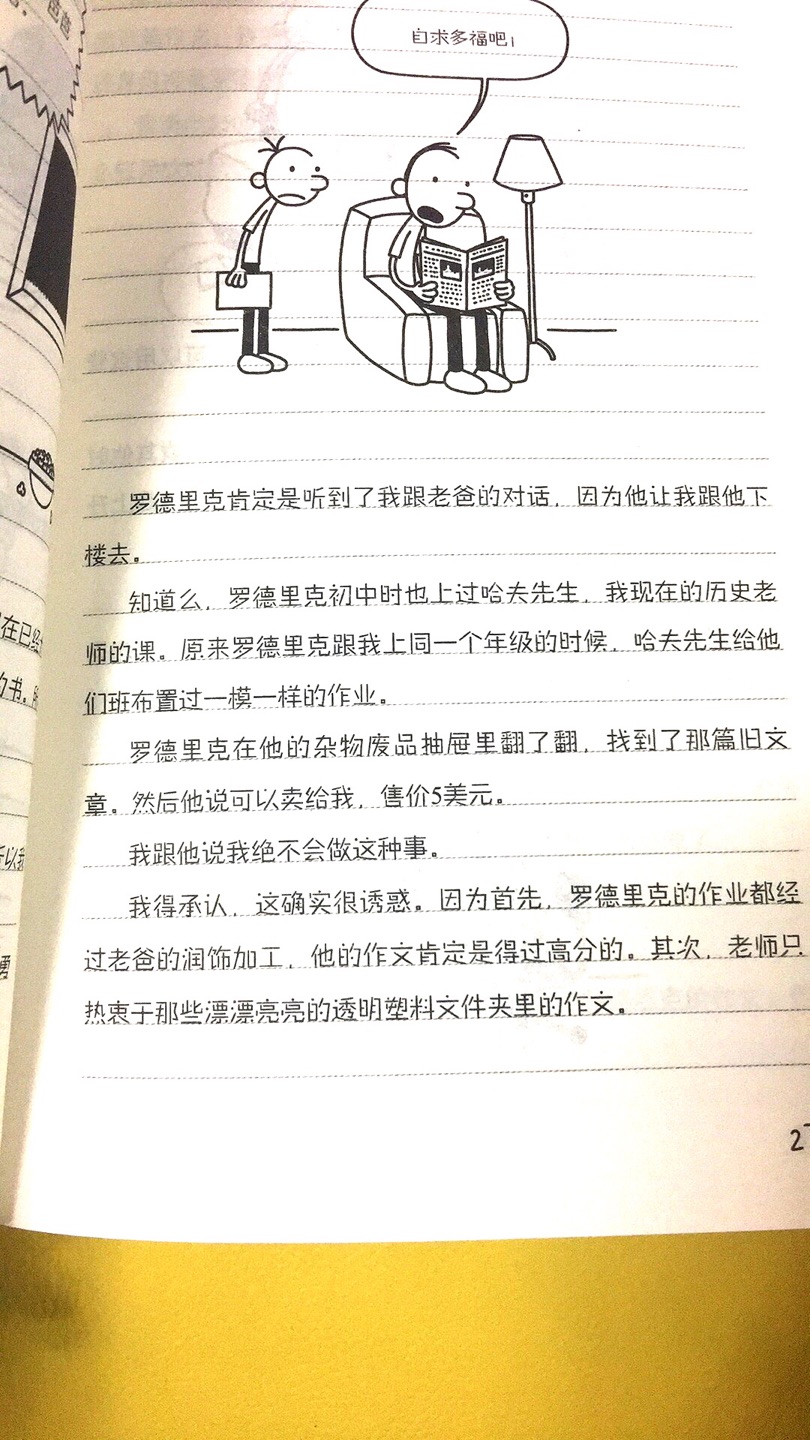 自求多福吧!
罗德里克肯定是听到了我跟老爸的对话，因为他让我跟他下
楼去。
知道么，罗德里克初中时也上过哈夫先生，我现在的历史老
师的课。原来罗德里克跟我上同一个年级的时候，哈夫先生给他
们班布置过一模一样的作业。
罗德里克在他的杂物废品抽屉里翻了翻，找到了那篇旧文
章。然后他说可以卖给我，售价5美元。
我跟他说我绝不会做这种事。
我得承认，这确实很诱惑。因为首先，罗德里克的作业都经
过老爸的润饰加工，他的作文肯定是得过高分的。其次，老师只
热衷于那些漂漂亮亮的透明塑料文件夹里的作文。
在已经
的书。